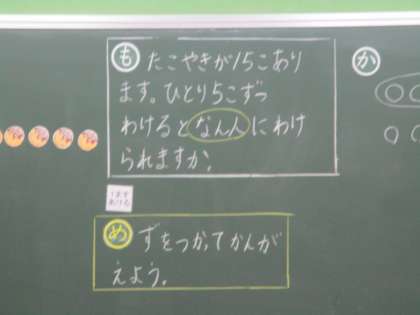 も たこやきが15こあり
ます。ひとり5こずつ
わけるとなん人にわけ
られますか。
か
め ずをつかってかんが
えよう。